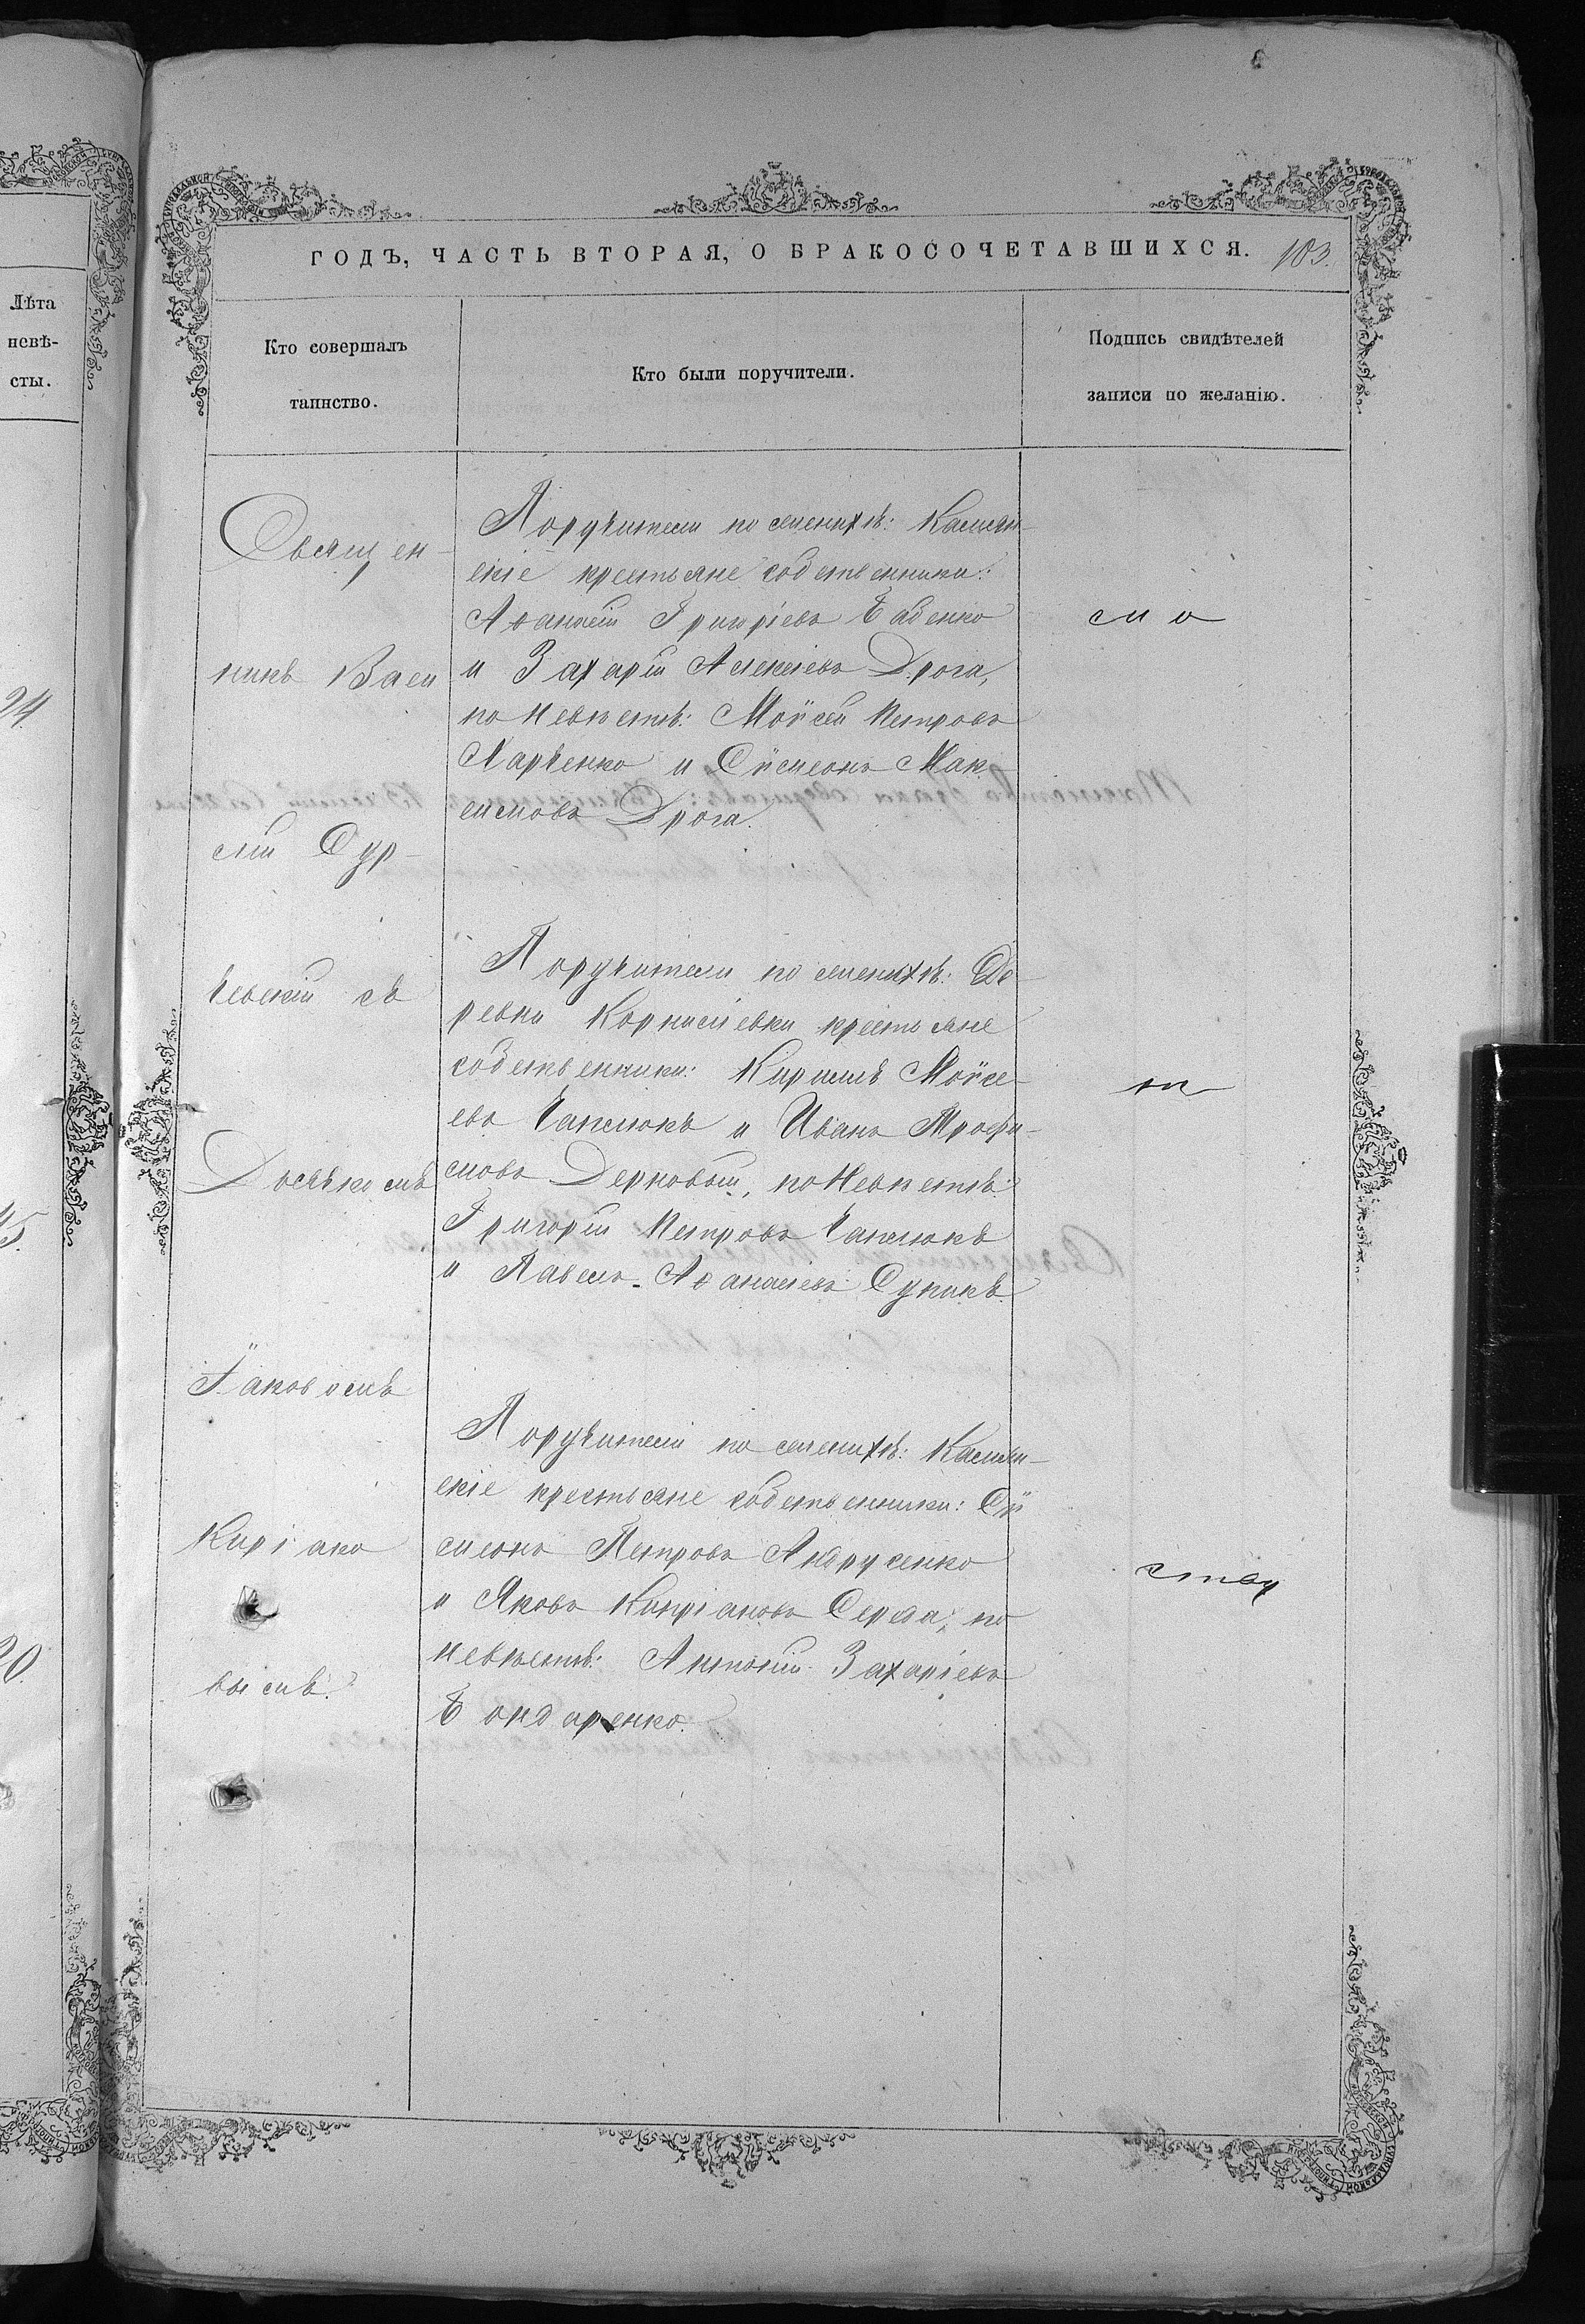 ГОДЪ, ЧАСТЬ ВТОРАЯ, О БРАКОСОЧЕТАВШИХСЯ. 183.
Лѣта
невѣ-
сты.
Кто совершалъ
таинство.
Кто были поручители.
Подпись свидѣтелей
записи по желанію.
24
20.
Священ-
никъ Васи
лій Сур-
чевскій съ
Дьячкомъ
Іаковомъ
Киріако
вымъ.
Поручители по женихѣ:
скіе крестьяне собственники:
Аѳанасій Григоріевъ Бабенко
и Захарій Алексіевъ Дрога,
по Невѣстѣ: Моѵсей Петровъ
Марченко и Сѵмеонъ Мак
симовъ Дрога.
Поручители по женихѣ: Де
ревни Корниліевки крестьяне
собственники: Кириллъ Моѵсе-
евъ Чаплюкъ и Иванъ Трофи-
мовъ Дерновый, по Невѣстѣ:
Григорій Петровъ Чаплюкъ
и Павелъ Аѳанасіевъ Сукикъ.
Поручители по женихѣ:
скіе крестьяне собственники: Сѵ
меонъ Петровъ Андрусенко
и Яковъ Кипріановъ Середа, по
невѣстѣ: Антоній Захаріевъ
Бондаренко.